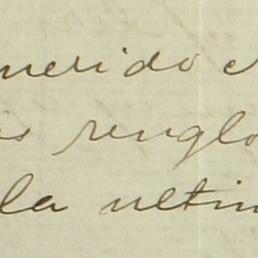 uerido
renglo
la ultim